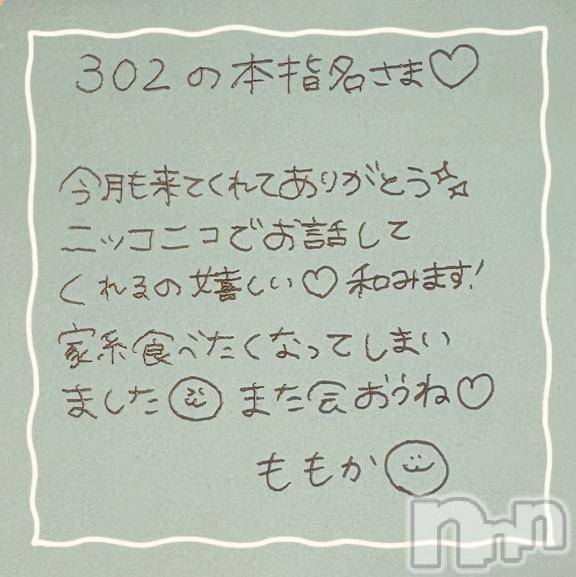 302の本指名さま♡
今月も来てくれてありがとう☆☆
ニッコニコでお話して
くれるの嬉しい♡和みます!
家系食べたくなってしまい
ました また会おうね♡
ももか
nnn